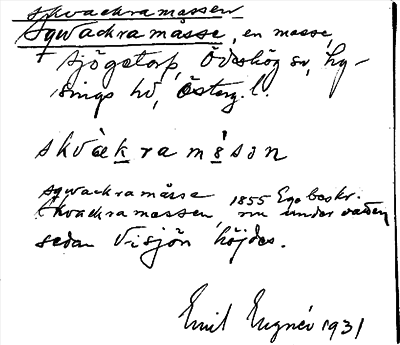 Skvackramåssen
Sqwackramåsse, en mosse,
Sjögetorp, Ödeshög sn, Ly-
sings hd, Österg. l.
skvækramåsən
Sqwackramåsse 1855 Ego beskr.
Skvackramossen, nu under vatten
sedan Visjön höjdes.
Emil Engnér 1931